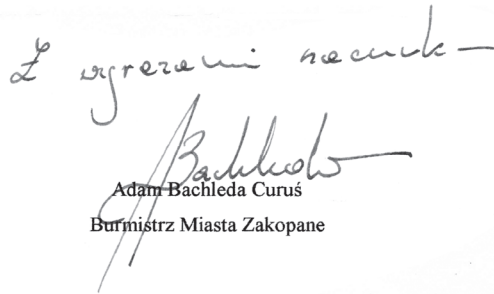 Z wyrazami szacunk
A Bachleda
Adam Bachleda Curuś
Burmistrz Miasta Zakopane